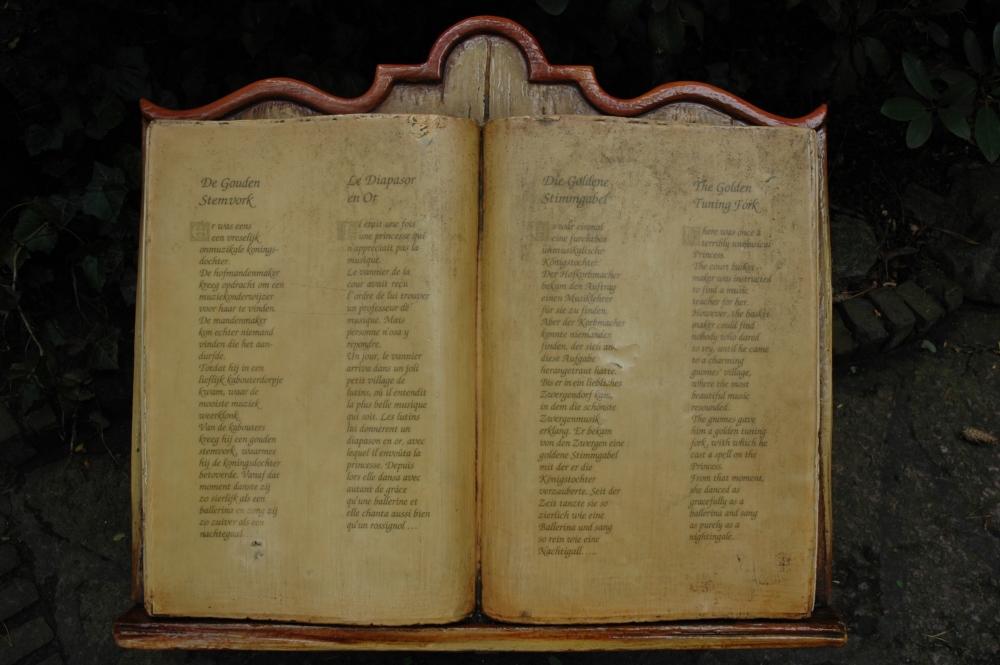 De Gouden
Stemvork
Er was eens
een vreselijk
onmuzikale konings-
dochter.
De hofmandenmaker
kreeg opdracht om een
muziekonderwijzer
voor haar te vinden.
De mandenmaker
kon echter niemand
vinden die het aan-
durfde.
Totdat hij in een
lieflijk kabouterdorpje
kwam, waar de
mooiste muziek
weerklonk.
Van de kabouters
kreeg hij een gouden
stemvork, waarmee
hij de koningsdochter
betoverde. Vanaf dat
moment danste zij
zo sierlijk als een
ballerina en zong zij
zo zuiver als een
nachtegaal....
Le Diapasor
en Or
Il était une fois
une princesse qui
n'appreciait pas la
musique.
Le vannier de la
cour avait reçu
l'ordre de lui trouver
un professeur de
musique. Mais
personne n'osa y
répondre.
Un jour, le vannier
arriva dans un joli
petit village de
lutins, où il entendit
la plus belle musique
qui soit. Les lutins
lui donnèrent un
diapason en or, avec
lequel il envoûta la
princesse. Depuis
lors elle dansa avec
autant de grâce
qu'une ballerine et
elle chanta aussi bien
qu'un rossignol ....
Die Goldene
Stimmgabel
Es war einmal
eine furchtbar
unmusikalische
Königstochter.
Der Hofkorbmacher
bekam den Auftrag
einen Musiklehrer
für sie zu finden.
Aber der Korbmacher
konnte niemanden
finden, der sich an
diese Aufgabe
herangetraut hatte.
Bis er in ein liebliches
Zwergendorf kam,
in dem die schönste
Zwergenmusik
erklang. Er bekam
von den Zwergen eine
goldene Stimmgabel
mit der er die
Königstochter
verzauberte. Seit der
Zeit tanzte sie so
zierlich wie eine
Ballerina und sang
so rein wie eine
Nachtigall....
The Golden
Tuning Fork
There was once a
terribly unmusical
Princess.
The court basket-
maker was instructed
to find a music
teacher for her.
However, the basket
maker could find
nobody who dared
to try, until he came
to a charming
gnomes' village,
where the most
beautiful music
resounded.
The gnomes gave
him a golden tuning
fork, with which he
cast a spell on the
Princess.
From that moment,
she danced as
gracefully as a
ballerina and sang
as purely as a
nightingale.